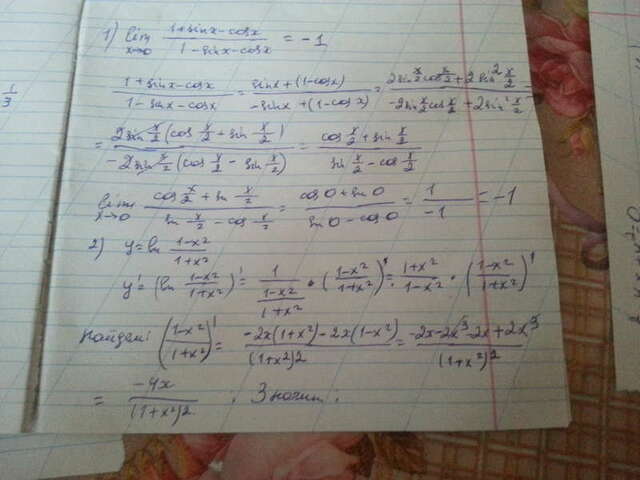 1) lim x→0 (1+sinx-cosx)/(1-sinx-cosx) = -1
(1+sinx-cosx)/(1-sinx-cosx) = (sinx+(1-cosx))/(-sinx+(1-cosx)) = (2sin x/2 cos x/2 + 2sin² x/2)/(-2sin x/2 cos x/2 + 2sin² x/2) =
= (2sin x/2 (cos x/2 + sin x/2))/(-2sin x/2 (cos x/2 - sin x/2)) = (cos x/2 + sin x/2)/(sin x/2 - cos x/2)
lim x→0 (cos x/2 + sin x/2)/(sin x/2 - cos x/2) = (cos0+sin0)/(sin0-cos0) = 1/-1 = -1
2) y=ln (1-x²)/(1+x²)
y' = (ln (1-x²)/(1+x²))' = 1/((1-x²)/(1+x²)) • ((1-x²)/(1+x²))' = (1+x²)/(1-x²) • ((1-x²)/(1+x²))'
Найдем: ((1-x²)/(1+x²))' = (-2x(1+x²)-2x(1-x²))/(1+x²)2 = (-2x-2x³-2x+2x³)/(1+x²)²
= -4x/(1+x²)2 ; Значит:
1/3